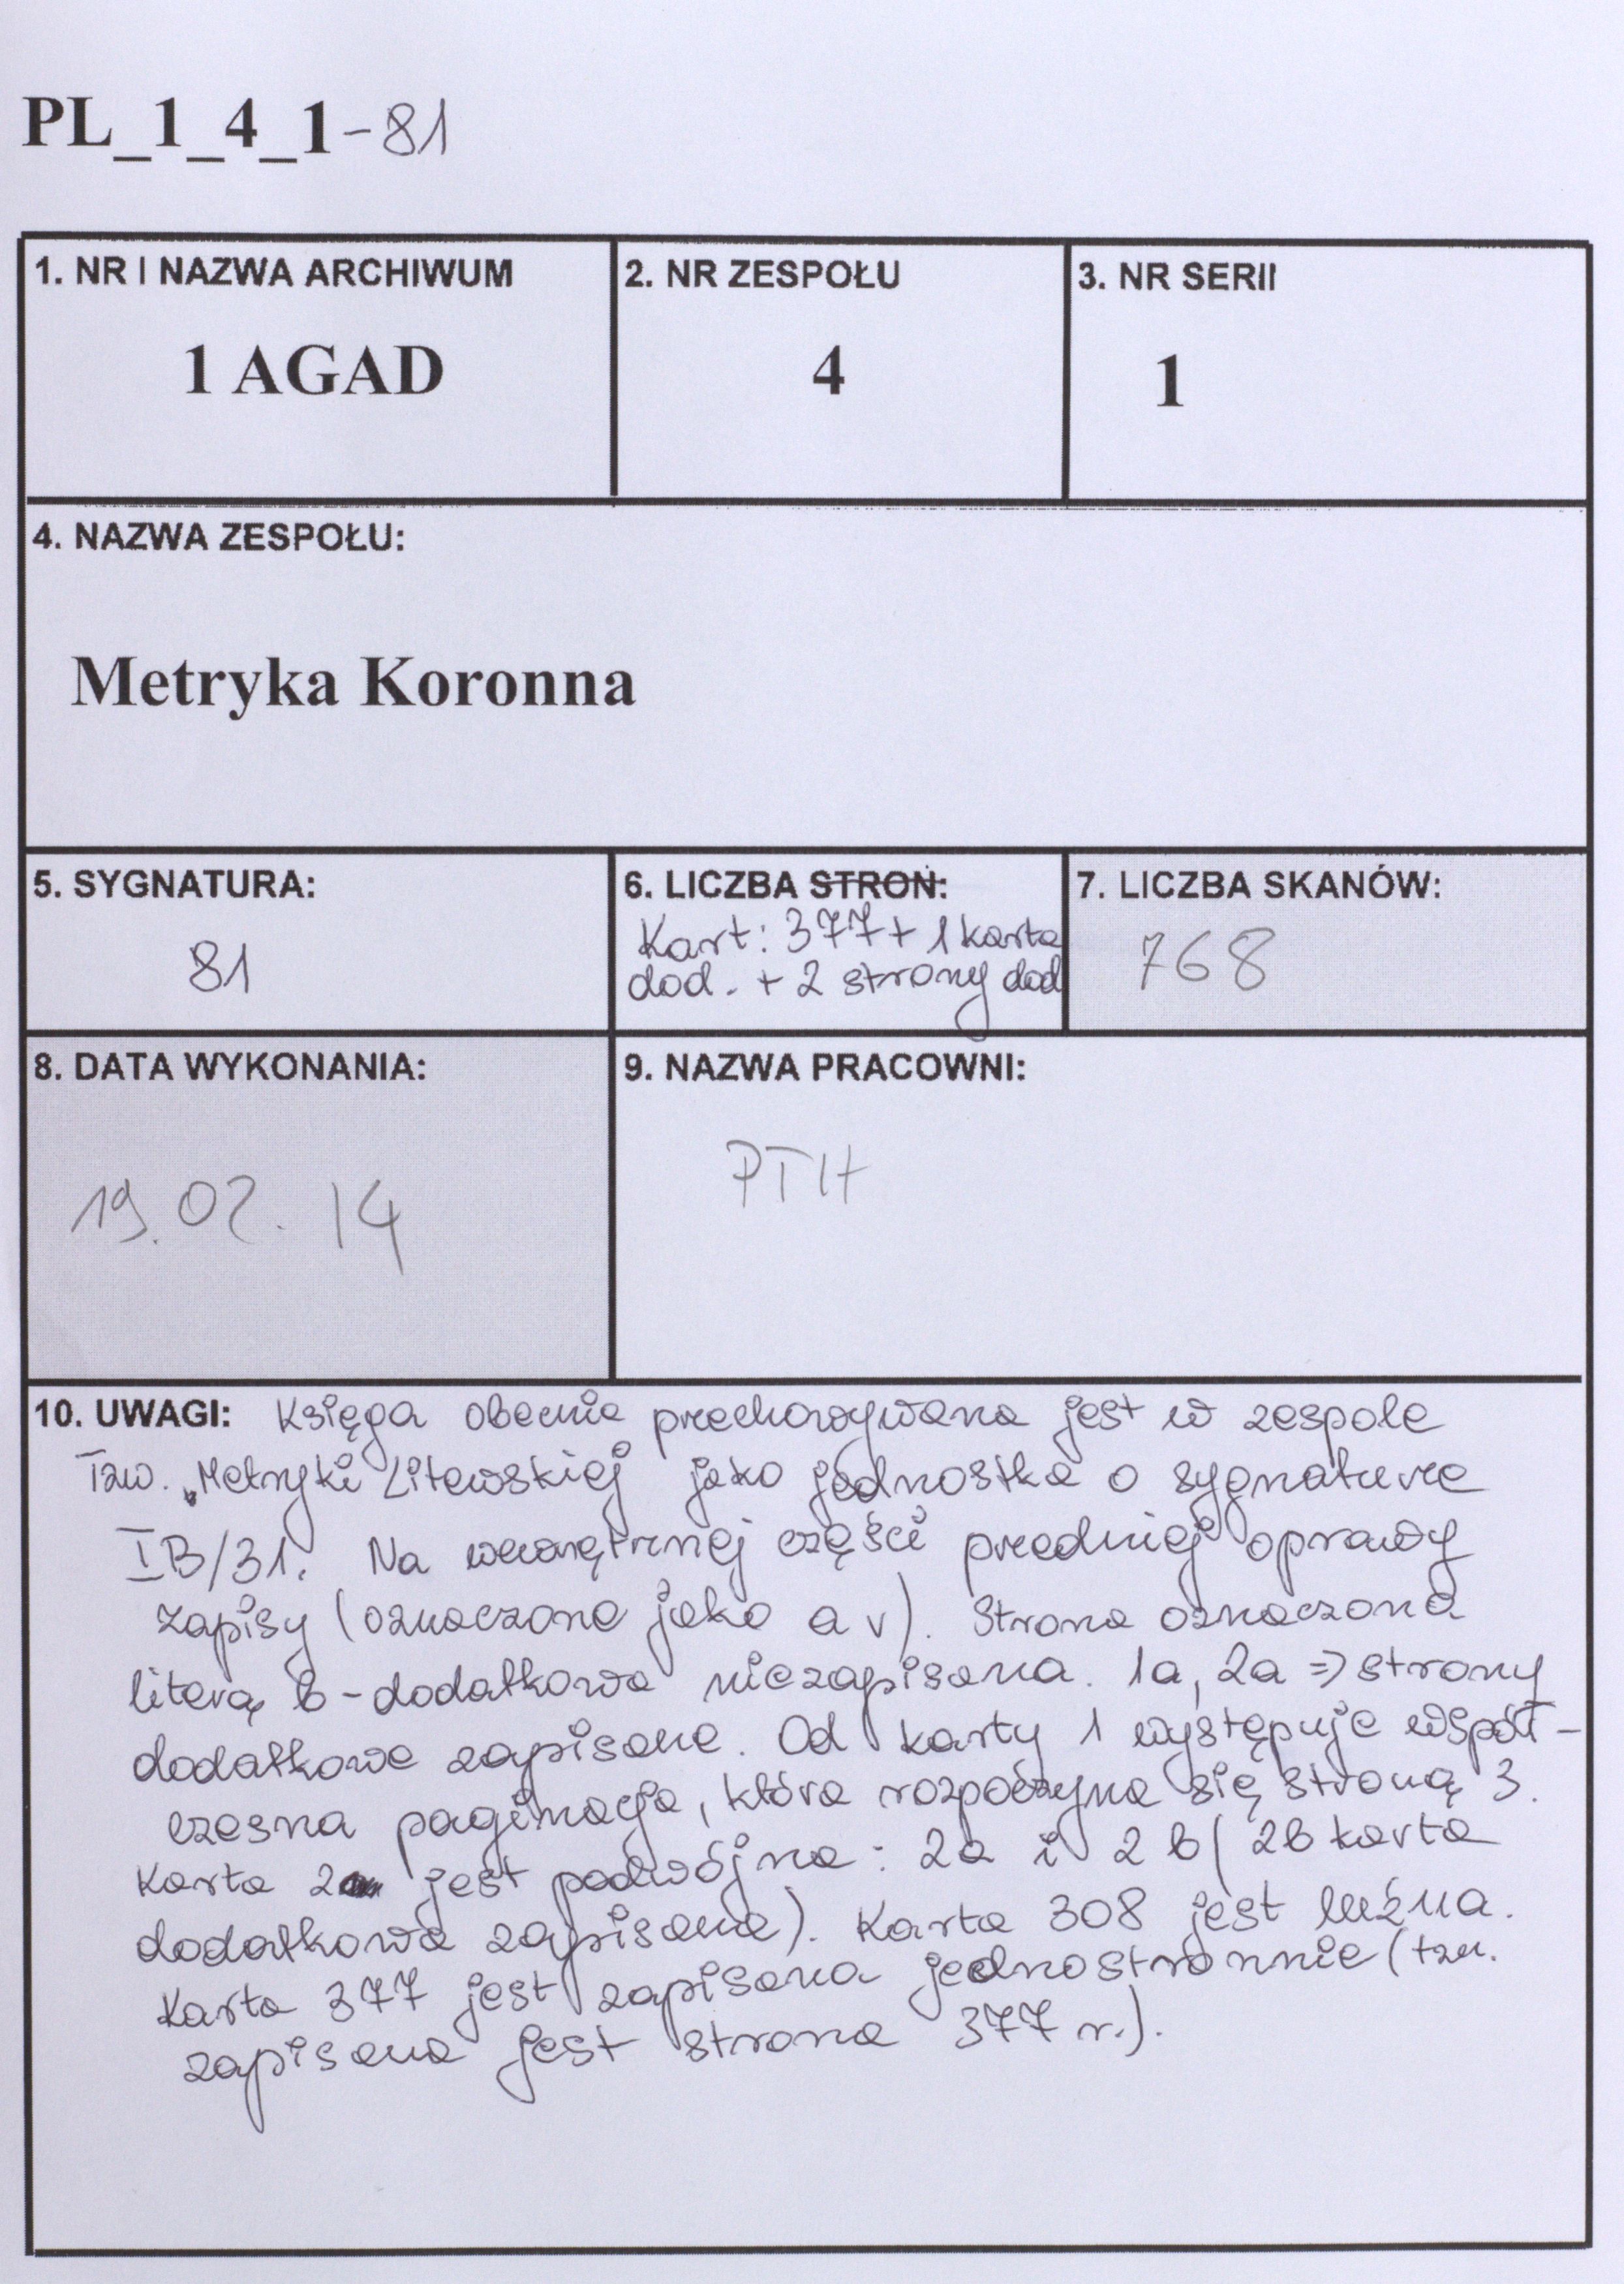 PL_1_4_1-81
1. NR I NAZWA ARCHIWUM
1 AGAD
2. NR ZESPOŁU
4
3. NR SERII
1
4. NAZWA ZESPOŁU:
Metryka Koronna
5. SYGNATURA:
81
6. LICZBA STRON:
Kart: 377 + 1 karta
dod. + 2 strony dod
7. LICZBA SKANÓW:
768
8. DATA WYKONANIA:
19.02.14
9. NAZWA PRACOWNI:
PTH
10. UWAGI: Księga obecnie przechowywana jest w zespole
Tzw. „Metryki Litewskiej jako jednostka o sygnaturze
IB/31. Na wewnętrznej części przedniej oprawy
zapisy (oznaczone jako a v). Strona oznaczona
literą b - dodatkowa niezapisana. 1a, 2a => strony
dodatkowe zapisane. Od karty 1 występuje współ-
czesna paginacja, która rozpoczyna się stroną 3.
Karta 2 jest podwójna: 2a i 2b (2b karta
dodatkowa zapisana). Karta 308 jest luźna.
Karta 377 jest zapisana jednostronnie (tzn.
zapisana jest strona 377 r.).